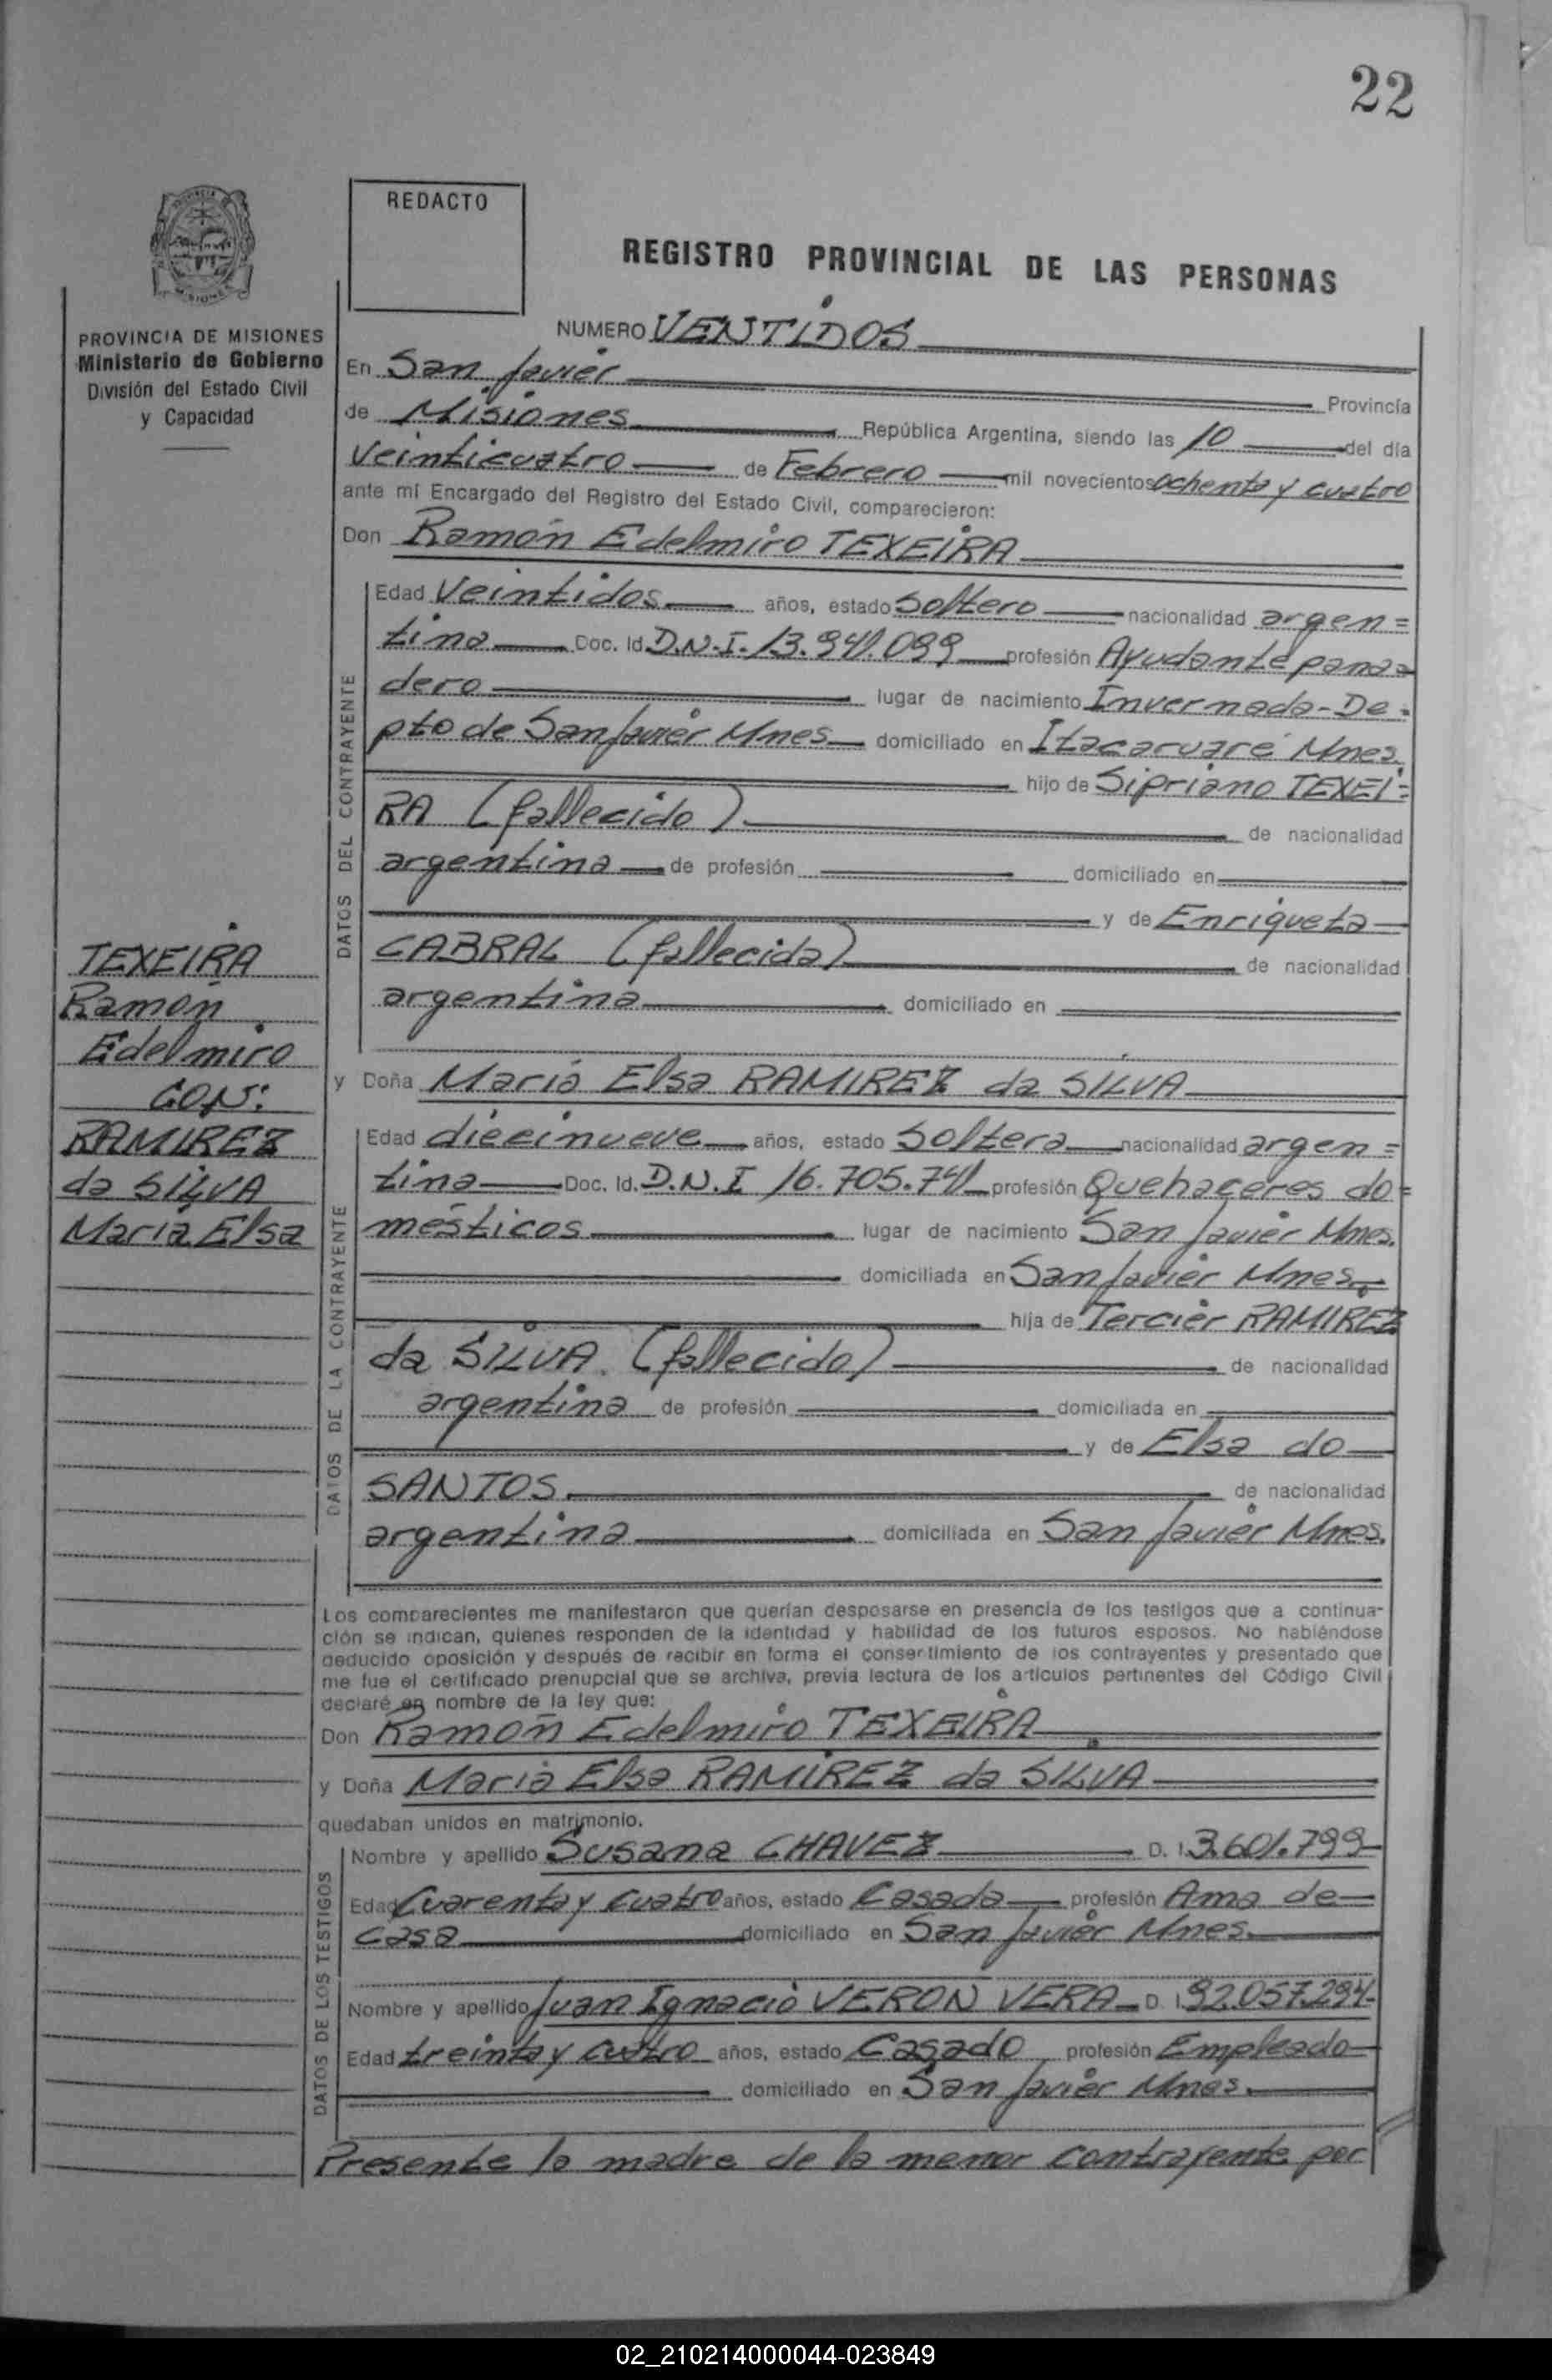 22
REDACTO
REGISTRO PROVINCIAL DE LAS PERSONAS
PROVINCIA DE MISIONES
Ministerio de Gobierno
División del Estado Civil
y Capacidad
NUMERO VENTIDOS
En San Javier Provincia
de Misiones República Argentina, siendo las 10 del día
Veinticuatro de Febrero mil novecientos ochenta y cuatro
ante mí Encargado del Registro del Estado Civil, comparecieron:
Don Ramón Edelmiro TEXEIRA
DATOS DEL CONTRAYENTE
Edad Veintidos años, estado Soltero nacionalidad argen=
tina Doc. Id. D.N.I. 13.941.099 profesión Ayudante pana=
dero lugar de nacimiento Invernada-De.
pto de San Javier Mnes domiciliado en Itacaruaré Mnes.
hijo de Sipriano TEXEI=
RA (fallecido) de nacionalidad
argentina de profesión domiciliado en
y de Enriqueta
CABRAL (fallecida) de nacionalidad
argentina domiciliado en
TEXEIRA
Ramón
Edelmiro
CON:
RAMIREZ
da SILVA
María Elsa
y Doña María Elsa RAMIREZ da SILVA
DATOS DE LA CONTRAYENTE
Edad diecinueve años, estado Soltera nacionalidad argen=
tina Doc. Id. D.N.I 16.705.741 profesión Quehaceres do=
mésticos lugar de nacimiento San Javier Mnes.
domiciliada en San Javier Mnes.
hija de Tercier RAMIREZ
da SILVA. (fallecido) de nacionalidad
argentina de profesión domiciliada en
y de Elsa do
SANTOS de nacionalidad
argentina domiciliada en San Javier Mnes.
Los comparecientes me manifestaron que querían desposarse en presencia de los testigos que a continua-
ción se indican, quienes responden de la identidad y habilidad de los futuros esposos. No habiéndose
deducido oposición y después de recibir en forma el consertimiento de los contrayentes y presentado que
me fue el certificado prenupcial que se archiva, previa lectura de los artículos pertinentes del Código Civil
declaré en nombre de la ley que:
Don Ramón Edelmiro TEXEIRA
y Doña María Elsa RAMIREZ da SILVA
quedaban unidos en matrimonio.
DATOS DE LOS TESTIGOS
Nombre y apellido Susana CHAVEZ D. I. 3.601.799
Edad Cuarenta y cuatro años, estado Casada profesión Ama de
casa domiciliado en San Javier Mnes.
Nombre y apellido Juan Ignacio VERON VERA D. I. 92.057.294
Edad treinta y cuatro años, estado Casado profesión Empleado
domiciliado en San Javier Mnes.
Presente la madre de la menor contrayente por
02_210214000044-023849